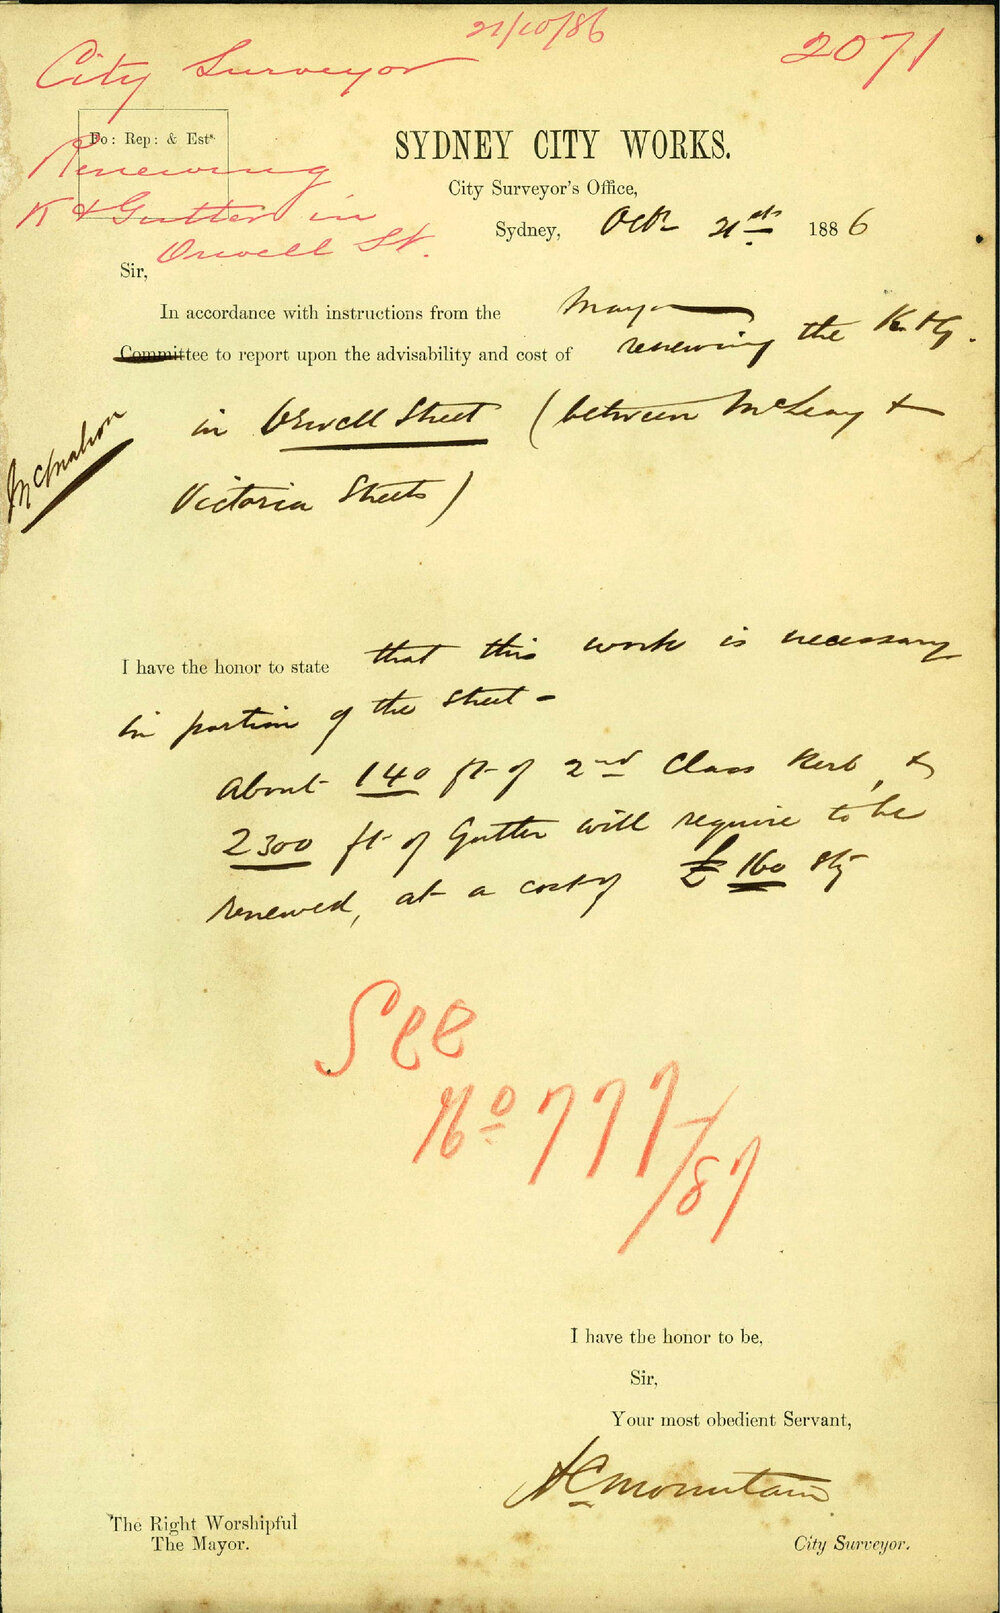 21/10/86
2071
City Surveyor
Fo: Rep: & Ests.
Renewing
K & Gutter in
Orwell St.
SYDNEY CITY WORKS.
City Surveyor's Office,
Sydney, Octr 21st 1886
Sir,
In accordance with instructions from the Mayor
Committee to report upon the advisability and cost of renewing the K. & G.
in Orwell Street (between McLeay &
Victoria Streets)
McMahon
I have the honor to state that this work is necessary
in portion of the Street -
About 140 ft of 2nd Class Kerb, &
2300 ft of Gutter will require to be
renewed, at a cost of £160 stg
See
No 777/87
I have the honor to be,
Sir,
Your most obedient Servant,
A C Mountain
The Right Worshipful
The Mayor.
City Surveyor.